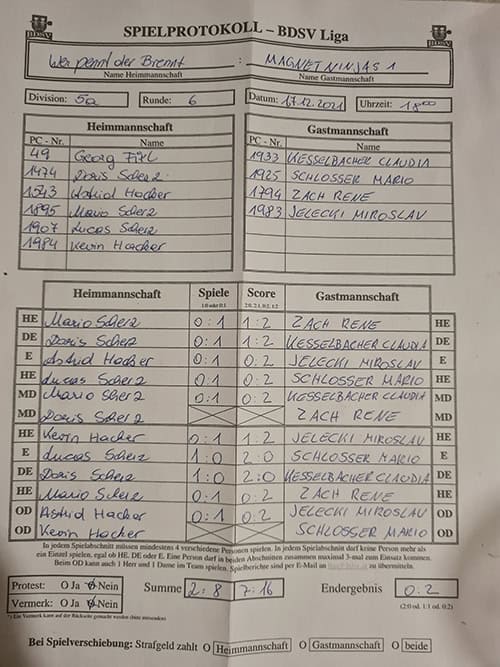 BDSV
SPIELPROTOKOLL – BDSV Liga
BDSV
Wer pennt der Brennt : MAGNETNINJAS 1
Name Heimmannschaft Name Gastmannschaft
Division: 5a Runde: 6 Datum: 17.12.2021 Uhrzeit: 18⁰⁰
Heimmannschaft Gastmannschaft
PC - Nr. Name PC - Nr. Name
49 Georg 1933 KESSELBACHER CLAUDIA
1474 Doris Scherz 1925 SCHLOSSER MARIO
1543 Astrid Hacker 1794 ZACH RENE
1895 Mario Scherz 1983 JELECKI MIROSLAV
1907 Lucas Scherz
1984 Kevin Hacker
Heimmannschaft Spiele Score Gastmannschaft
1:0 oder 0:1 2:0, 2:1, 0:2, 1:2
HE Mario Scherz 0:1 1:2 ZACH RENE HE
DE Doris Scherz 0:1 1:2 KESSELBACHER CLAUDIA DE
E Astrid Hacker 0:1 0:2 JELECKI MIROSLAV E
HE Lucas Scherz 0:1 0:2 SCHLOSSER MARIO HE
MD Mario Scherz 0:1 0:2 KESSELBACHER CLAUDIA MD
MD Doris Scherz ZACH RENE MD
HE Kevin Hacker 0:1 1:2 JELECKI MIROSLAV HE
E Lucas Scherz 1:0 2:0 SCHLOSSER MARIO E
DE Doris Scherz 1:0 2:0 KESSELBACHER CLAUDIA DE
HE Mario Scherz 0:1 0:2 ZACH RENE HE
OD Astrid Hacker 0:1 0:2 JELECKI MIROSLAV OD
OD Kevin Hacker SCHLOSSER MARIO OD
In jedem Spielabschnitt müssen mindestens 4 verschiedene Personen spielen. In jedem Spielabschnitt darf keine Person mehr als
ein Einzel spielen, egal ob HE, DE oder E. Eine Person darf in beiden Abschnitten zusammen maximal 3-mal zum Einsatz kommen.
Beim OD kann auch 1 Herr und 1 Dame im Team spielen. Spielberichte sind per E-Mail an zu übermitteln.
Protest: O Ja O Nein Summe 2:8 7:16 Endergebnis 0:2
Vermerk: O Ja O Nein (2:0 od. 1:1 od. 0:2)
*) Ein Vermerk kann auf der Rückseite gemacht werden (bitte ausserdem)
Bei Spielverschiebung: Strafgeld zahlt O Heimmannschaft O Gastmannschaft O beide